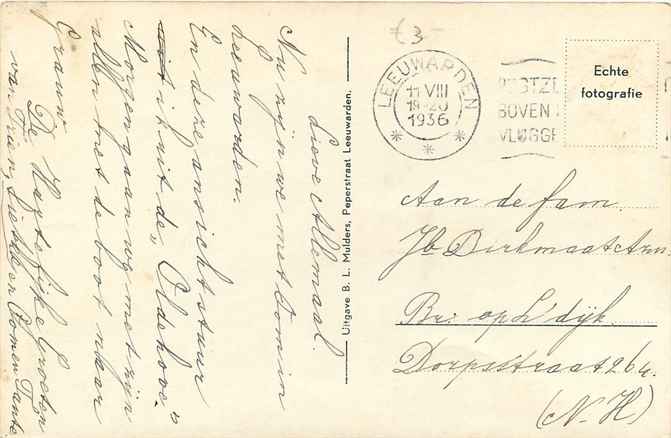 Lieve Allemaal.
Nu zijn we met Oom in
Leeuwarden.
En deze ansicht stuur
ik uit de „Oldehove"
Morgen gaan we met zijn
allen met de boot naar
Grauw
De Hartelijke Groeten
van Tante en Oom
Uitgave B. L. Mulders, Peperstraat Leeuwarden.
€ 3-
LEEUWARDEN
11 VIII
19-20
1936
POSTZE
BOVEN
VLUGGE
Echte
fotografie
Aan de fam.
Jb Dirkmaat Azn.
Br: op L'dijk.
Dorpsstraat 264.
(N.H)